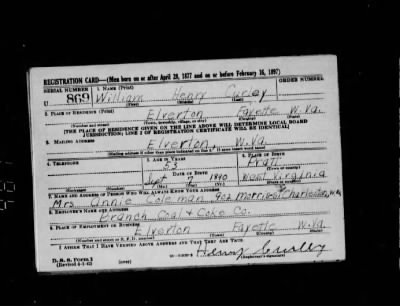 REGISTRATION CARD—(Men born on or after April 28, 1877 and on or before February 16, 1897)
SERIAL NUMBER 1. NAME (Print) ORDER NUMBER
U 869 William Henry Curley
(First) (Middle) (Last)
2. PLACE OF RESIDENCE (Print)
Elverton Fayette W.Va.
(Number and street) (Town, township, village, or city) (County) (State)
[THE PLACE OF RESIDENCE GIVEN ON THE LINE ABOVE WILL DETERMINE LOCAL BOARD
JURISDICTION; LINE 2 OF REGISTRATION CERTIFICATE WILL BE IDENTICAL]
3. MAILING ADDRESS
Elverton, W.Va.
[Mailing address if other than place indicated on line 2. If same insert word same]
4. TELEPHONE 5. AGE IN YEARS 6. PLACE OF BIRTH
Pratt
DATE OF BIRTH (Town or county)
Sept 7 West Virginia
(Exchange) (Number) (Mo.) (Day) (Yr.) (State or country)
7. NAME AND ADDRESS OF PERSON WHO WILL ALWAYS KNOW YOUR ADDRESS
Mrs. Annie Coleman 902 Morris St Charleston, W.Va
8. EMPLOYER'S NAME AND ADDRESS
Branch Coal & Coke Co.
9. PLACE OF EMPLOYMENT OR BUSINESS
Elverton Fayette W.Va
(Number and street or R. F. D. number) (Town) (County) (State)
I AFFIRM THAT I HAVE VERIFIED ABOVE ANSWERS AND THAT THEY ARE TRUE.
D. S. S. Form 1
(Revised 4-1-42) (over) Henry Curley
(Registrant's signature)